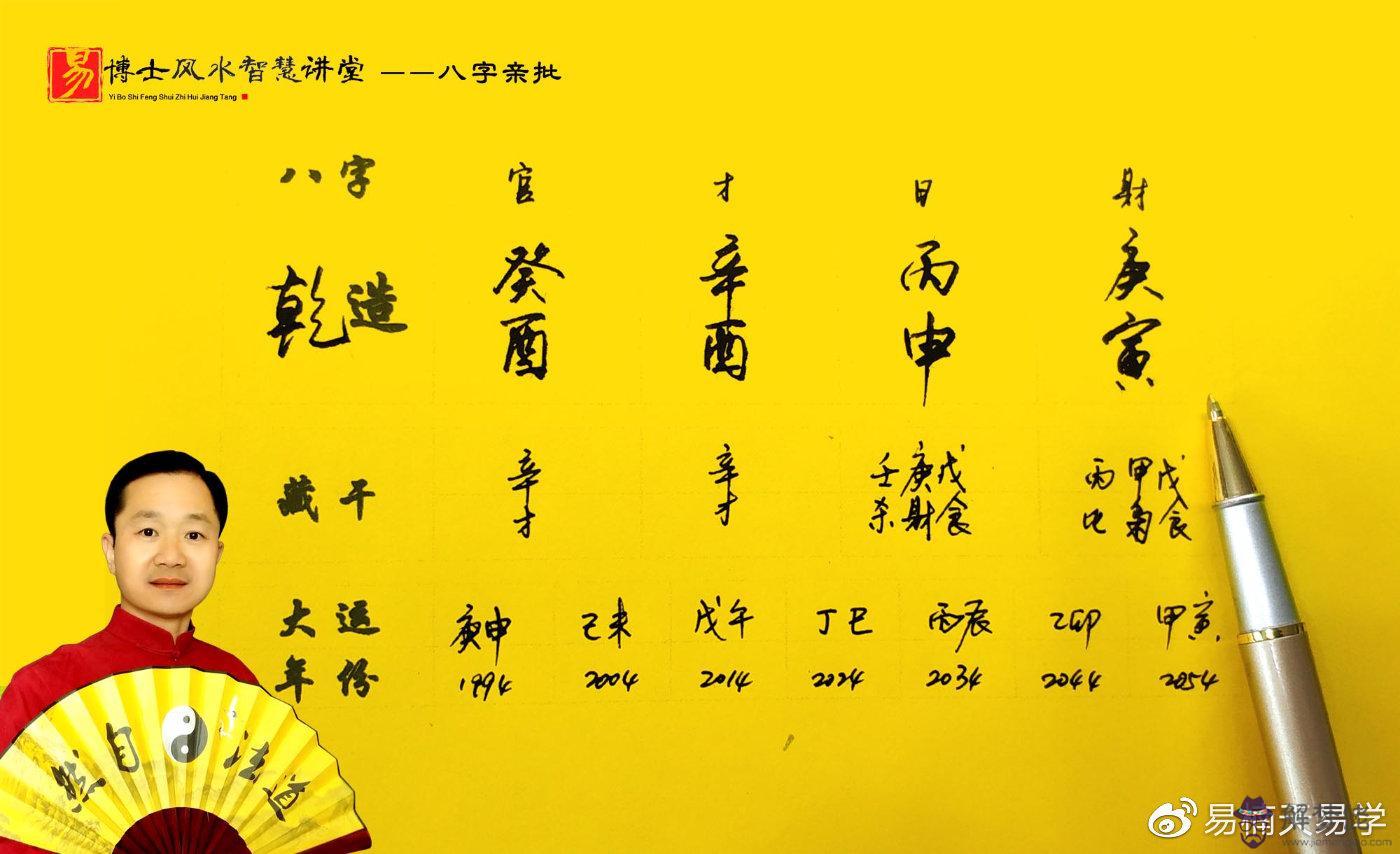 易 博士风水智慧讲堂 ——八字亲批
Yi Bo Shi Feng Shui Zhi Hui Jiang Tang
八字 官 才 日 财
乾造 癸 辛 丙 庚
酉 酉 申 寅
藏干 辛 辛 壬庚戊 丙甲戊
才 才 杀财食 比 食
大运 庚申 己未 戊午 丁巳 丙辰 乙卯 甲寅
年份 1994 2004 2014 2024 2034 2044 2054
然自法道
易楠天易学